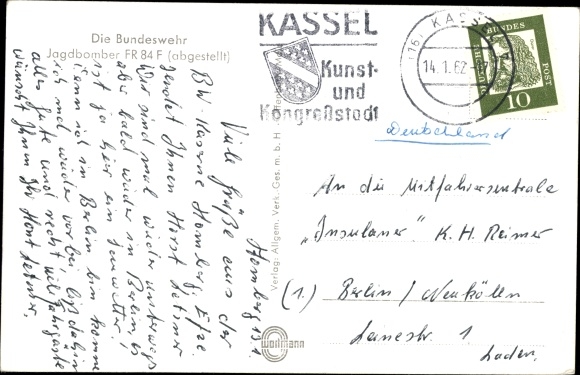 Die Bundeswehr
Jagdbomber FR 84 F (abgestellt)
KASSEL
Kunst-
und
Kongreßstadt
(16) KASSEL
14.1.62
DEUTSCHE BUNDESPOST
10
Deutschland
An die Mitfahrerzentrale
„Insulaner" K. H. Reimer
(1.) Berlin / Neukölln
Leinestr. 1
Laden.
Homberg 13.1.
Viele Grüße aus der
Bw. Kaserne Homberg Efze.
sendet Ihnen Horst
Wir sind mal wieder unterwegs
aber bald wieder in Berlin, es
ist ja hier ein
Wenn ich in Berlin bin komme
ich mal wieder vorbei bis dahin
alles gute und recht viel Fahrgäste
wünscht Ihnen Ihr Horst
Verlag: Allgem. Verk. Ges. m. b. H.